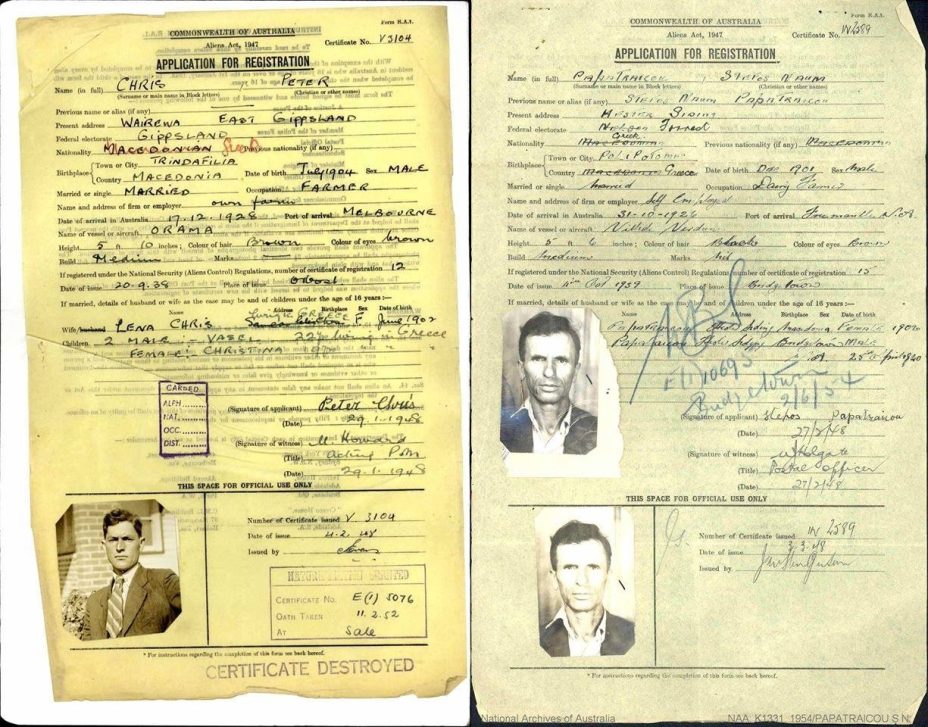 Form R.A.1.
COMMONWEALTH OF AUSTRALIA
Aliens Act, 1947
Certificate No. V3104
APPLICATION FOR REGISTRATION
Name (in full) CHRIS PETER
(Surname or main name in Block letters) (Christian or other names)
Previous name or alias (if any)
Present address WAIREWA EAST GIPPSLAND
Federal electorate GIPPSLAND
Nationality MACEDONIAN Previous nationality (if any)
Birthplace Town or City TRINDAFILIA
Country MACEDONIA Date of birth July 1904 Sex MALE
Married or single MARRIED Occupation FARMER
Name and address of firm or employer own farm
Date of arrival in Australia 17.12.1928 Port of arrival MELBOURNE
Name of vessel or aircraft ORAMA
Height 5 ft 10 inches; Colour of hair Brown Colour of eyes brown
Build Medium Marks
If registered under the National Security (Aliens Control) Regulations, number of certificate of registration 12
Date of issue 20.9.39 Place of issue Orbost
If married, details of husband or wife as the case may be and of children under the age of 16 years :—
Name Address Birthplace Sex Date of birth
Wife/husband LENA CHRIS GREECE F. June 1902
Children 2 MALE - VASIL living in Greece
FEMALE - CHRISTINA
CARDED
ALPH.
NAT.
OCC.
DIST.
(Signature of applicant) Peter Chris
(Date) 29.1.1948
(Signature of witness) M Howard
(Title) acting P.M
(Date) 29.1.1948
THIS SPACE FOR OFFICIAL USE ONLY
Number of Certificate issued V 3104
Date of issue 4.2.48
Issued by
NATURALIZATION GRANTED
CERTIFICATE No. E(1) 5076
OATH TAKEN 11.2.52
AT Sale
* For instructions regarding the completion of this form see back hereof.
CERTIFICATE DESTROYED
Form R.A.1.
COMMONWEALTH OF AUSTRALIA
Aliens Act, 1947
Certificate No. W2589
APPLICATION FOR REGISTRATION
Name (in full) PAPATRAICOU STEROS NAUM
(Surname or main name in Block letters) (Christian or other names)
Previous name or alias (if any) STEROS NAUM PAPATRAICOU
Present address HESTER SIDING
Federal electorate Forrest
Nationality Greek Macedonian Previous nationality (if any) Macedonian
Birthplace Town or City
Country Macedonia Greece Date of birth Dec 1901 Sex Male
Married or single Married Occupation Dairy Farmer
Name and address of firm or employer Self Employed
Date of arrival in Australia 31-10-1926 Port of arrival Fremantle
Name of vessel or aircraft Ville de Verdun
Height 5 ft 6 inches; Colour of hair Black Colour of eyes Brown
Build Medium Marks Nil
If registered under the National Security (Aliens Control) Regulations, number of certificate of registration 15
Date of issue Oct 1939 Place of issue Bridgetown
If married, details of husband or wife as the case may be and of children under the age of 16 years :—
Name Address Birthplace Sex Date of birth
Papatraicou Hester Siding Macedonia Female 1902
Papatraicou Hester Siding Bridgetown Male
25 April 1940
E(1)10693
Bridgetown
2/6/54
(Signature of applicant) Steros Papatraicou
(Date) 27/2/48
(Signature of witness) Holgate
(Title) Postal Officer
(Date) 27/2/48
THIS SPACE FOR OFFICIAL USE ONLY
Number of Certificate issued W 2589
Date of issue 3.3.48
Issued by
* For instructions regarding the completion of this form see back hereof.
National Archives of Australia
NAA: K1331, 1954/PAPATRAICOU S N